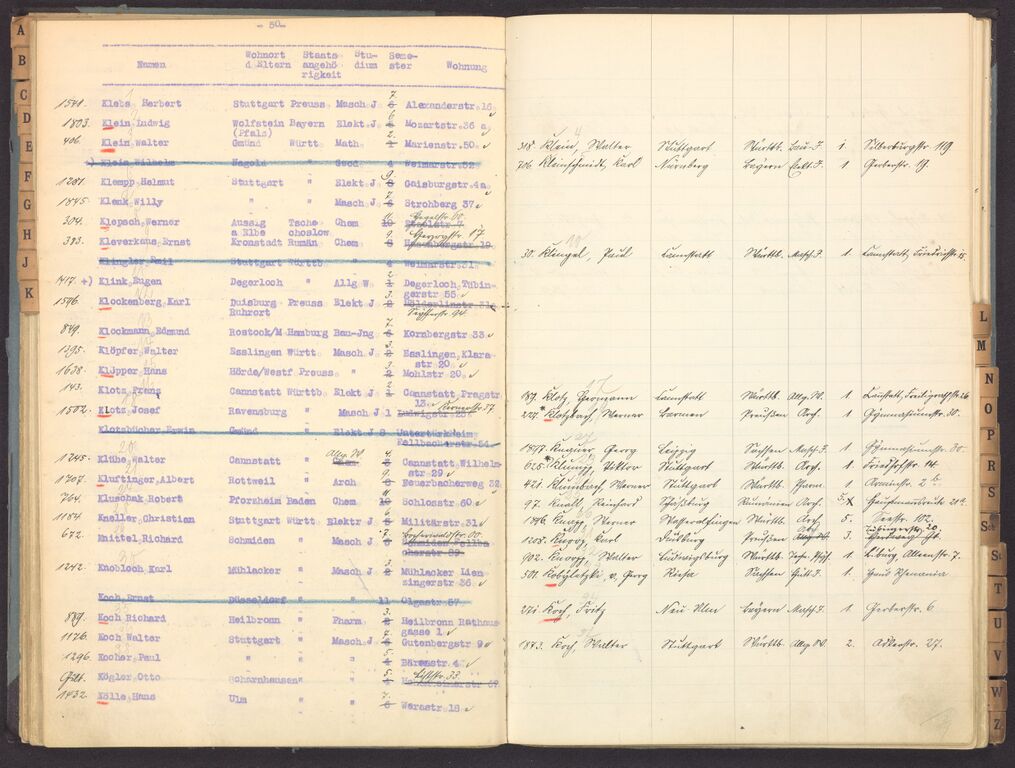 - 50 -
Namen Wohnort d.Eltern Staats angehö rigkeit Stu- dium Seme- ster Wohnung
1541. Klebs Herbert Stuttgart Preuss Masch J 7. 6 Alexanderstr 16
1803. Klein Ludwig Wolfstein Bayern Elekt J 6 Mozartstr 36 a
(Pfalz)
406. Klein Walter Gmünd Württ Math 2. 1 Marienstr 50
Klein Wilhelm Nagold " Geod 4 Weimarstr 32
1281. Klempp Helmut Stuttgart " Elekt J 9. 8 Gaisburgstr 4a
1845. Klenk Willy " " Masch J 7. 6 Strohberg 37
304. Klepsch Werner Aussig Tsche Chem 11. 10 Hegelstr. 60.
a Elbe choslow
393. Kleverkaus Ernst Kronstadt Rumän Chem 9. 8 17
Klingler Paul Stuttgart Württb " 4 Weimarstr 31
1417. +) Klink Eugen Degerloch " Allg W 2. 1 Degerloch Tübin-
gerstr 55
1596 Klockenberg Karl Duisburg Preuss Elekt J 3. 2 Hölderlinstr 31
Ruhrort
849. Klockmann Edmund Rostock/M Hamburg Bau-Jng 7. 6 Kornbergstr 33
1295. Klöpfer Walter Esslingen Württ Masch J 3. 2 Esslingen Klara-
str 20
1638. Klöpper Hans Hörde/Westf Preuss " 3. 2 Mohlstr 20
143. Klotz Franz Cannstatt Württb Elekt J 2. 1 Cannstatt Pragstr
13.
1502. Klotz Josef Ravensburg " Masch J 1 Ludwigstr Kernerstr. 37
Klotzbücher Erwin Gmünd " Elekt J 8 Untertürkheim
Fellbacherstr 54
1245. Klühe Walter Cannstatt " Allg. W. Chem 4. 3 Cannstatt Wilhelm-
str 29
1707. Kluftinger Albert Rottweil " Arch 9. 8 Feuerbacherweg 32
764. Kluschak Robert Pforzheim Baden Chem 10 Schlosstr 60
1184 Kneller Christian Stuttgart Württ Elektr J 5 Militärstr 31
672. Knittel Richard Schmiden " Masch J 7. 6 Schmiden Fellba
cherstr 39
1242. Knobloch Karl Mühlacker " Masch J 3. 2 Mühlacker Lien
zingerstr 36
Koch Ernst Düsseldorf " " 11 Olgastr 57
889. Koch Richard Heilbronn " Pharm 3. 2 Heilbronn Rathaus
gasse 1
1176. Koch Walter Stuttgart " Masch J 7. 6 Gutenbergstr 9
1296. Kocher Paul " " " 5. 4 Bärenstr 4
Kögler Otto Scharnhausen " " 5. 4 33.
1432. Kölle Hans Ulm " " 7. 6 Werastr 18
318. Klein, Walter Stuttgart Württb. Bau-J. 1. Silberburgstr 119
706. Kleinschmidt, Karl Nürnberg Bayern Elekt J. 1 Gerberstr. 17.
30. Klingel, Paul Cannstatt Württb. Masch J. 1. Cannstatt, Friedrichstr. 15
187. Klotz, Hermann Cannstatt Württb. Allg. W. 1 Cannstatt, Freiligrathstr. 26
227. Klotzbach, Werner Barmen Preußen Arch. 1 Gymnasiumstr. 30.
1847. Georg Leipzig Sachsen Masch J. 1 Gymnasiumstr. 30.
625. Viktor Stuttgart Württb. Arch. 1 Friedhofstr. 14
421. Werner Stuttgart Württb. Pharm. 1 Arminstr. 2 b
97. Knall, Reinhard Schäßburg Rumänien Arch. 5. Hauptmannsreute
1896. Knapp, Werner Wasseralfingen Württb. Arch 5. Seestr. 102.
1208. Knopp, Karl Duisburg Preußen Arch. 3.
902. Walter Ludwigsburg Württb. 1 L.burg, Alleenstr. 7.
501. Kobyletzki v., Georg Riesa Sachsen Hütt J. 1. Haus Rhenania
271 Koch, Fritz Neu Ulm Bayern Masch J. 1 Gerberstr. 6
1873. Koch, Walter Stuttgart Württb. Allg. W. 2. Adlerstr. 27.
A
B
C
D
E
F
G
H
J
K
L
M
N
O
P
R
S
Sch
St
T
U
V
W
Z